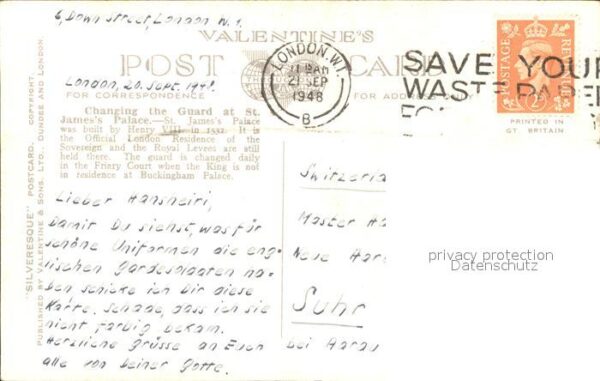 6, Down Street, London W. 1.
VALENTINE'S
POST CARD
London, 20. Sept. 1948.
FOR CORRESPONDENCE
FOR ADDRESS ONLY
LONDON. W.1.
AM
21 SEP
1948
B
SAVE YOUR
WASTE PAPER
FOR
POSTAGE
REVENUE
2D
PRINTED IN
GT BRITAIN
Changing the Guard at St.
James's Palace.—St. James's Palace
was built by Henry VIII. in 1532. It is
the Official London Residence of the
Sovereign and the Royal Levées are still
held there. The guard is changed daily
in the Friary Court when the King is not
in residence at Buckingham Palace.
"SILVERESQUE" POSTCARD. COPYRIGHT.
PUBLISHED BY VALENTINE & SONS. LTD., DUNDEE AND LONDON.
Lieber Hansheiri,
Damit Du siehst, was für
schöne Uniformen die eng-
lischen Gardesoldaten ha-
ben schicke ich Dir diese
Karte. Schade, dass ich sie
nicht farbig bekam.
Herzliche Grüsse an Euch
alle von Deiner Gotte.
Switzerla
Master Ha
Neue Aar
Suhr
bei Aarau
privacy protection
Datenschutz